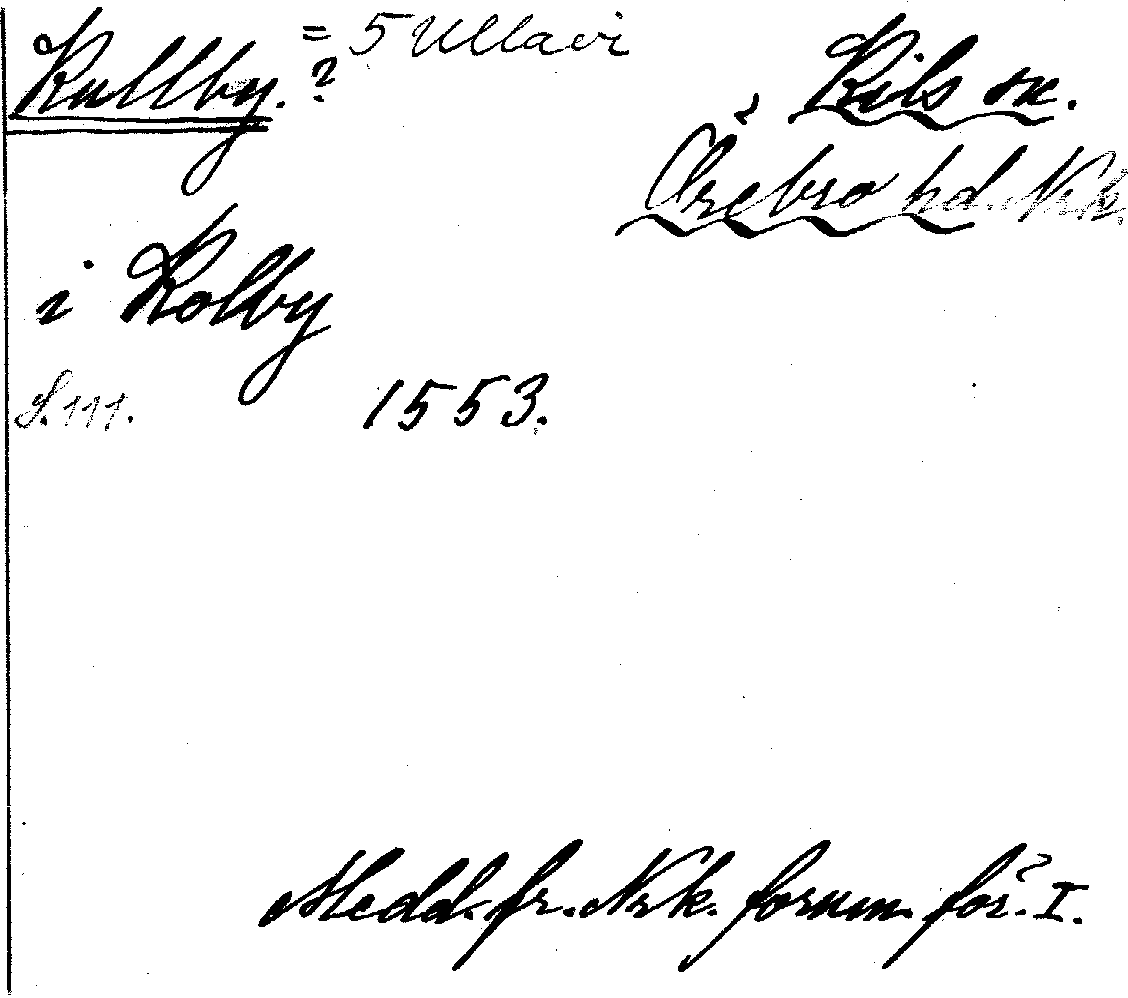 Kullby.? = 5 Ullavi
Kils sn.
Örebro hd. Nrk.
i Kolby
S. 111. 1553.
Medd. fr. Nrk. fornm. för. I.